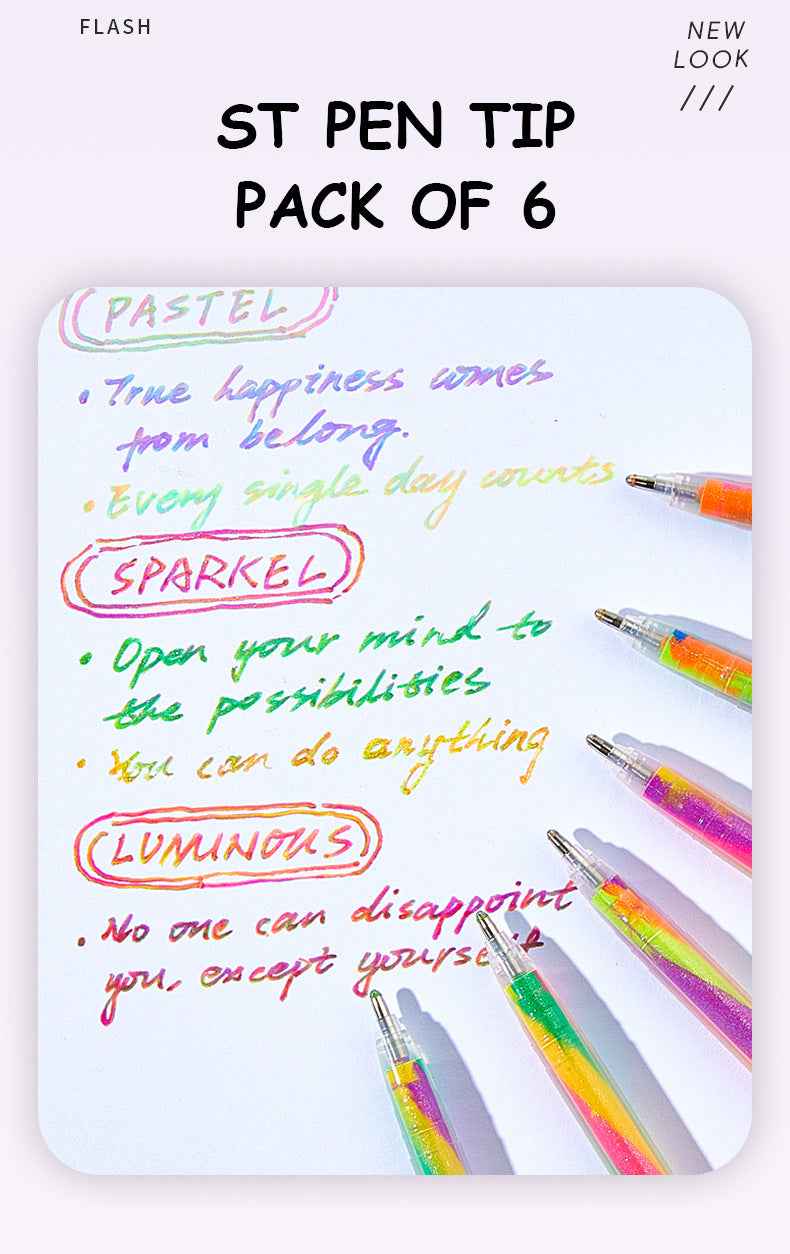 FLASH
NEW
LOOK
///
ST PEN TIP
PACK OF 6
PASTEL
• True happiness comes
from belong.
• Every single day counts
SPARKEL
• Open your mind to
the possibilities
• You can do anything
LUMINOUS
• No one can disappoint
you, except yourself